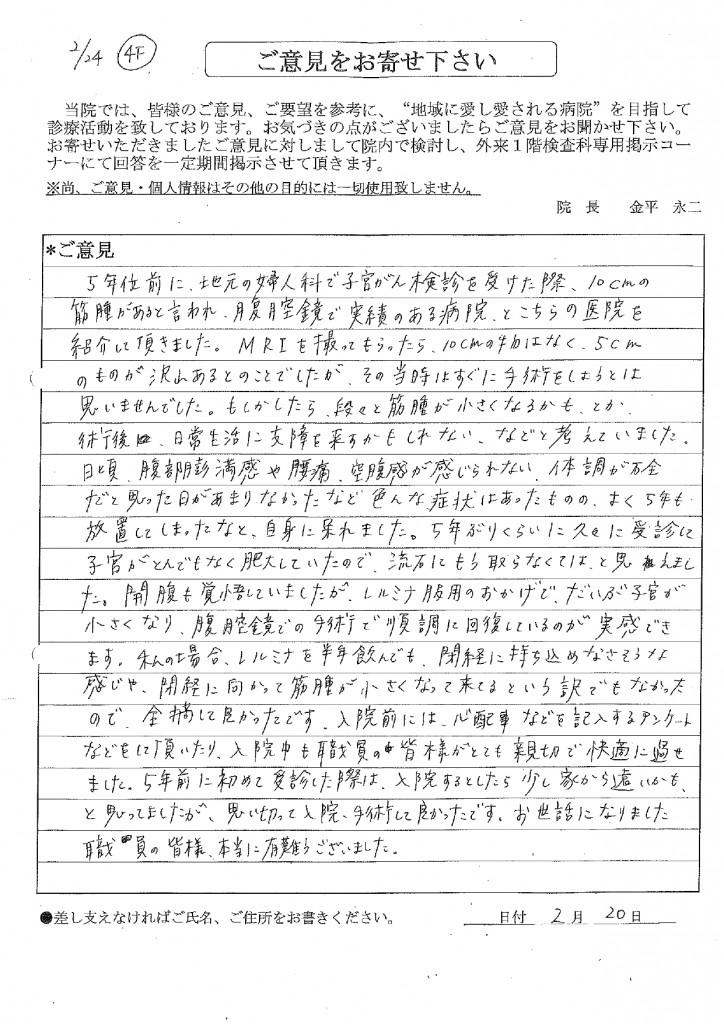 2/24 4F
ご意見をお寄せ下さい
当院では、皆様のご意見、ご要望を参考に、“地域に愛し愛される病院”を目指して
診療活動を致しております。お気づきの点がございましたらご意見をお聞かせ下さい。
お寄せいただきましたご意見に対しまして院内で検討し、外来１階検査科専用掲示コー
ナーにて回答を一定期間掲示させて頂きます。
※尚、ご意見・個人情報はその他の目的には一切使用致しません。
院 長 金平 永二
*ご意見
５年位前に、地元の婦人科で子宮がん検診を受けた際、10cmの
筋腫があると言われ、腹腔鏡で実績のある病院、とこちらの医院を
紹介して頂きました。MRIを撮ってもらったら、10cmの物はなく、5cm
のものが沢山あるとのことでしたが、その当時はすぐに手術をしようとは
思いませんでした。もしかしたら、段々と筋腫が小さくなるかも、とか、
術後、日常生活に支障を来すかもしれない、などと考えていました。
日頃、腹部膨満感や腰痛、空腹感が感じられない、体調が万全
だと思った日があまりなかったなど色んな症状はあったものの、よく５年も
放置してしまったなと、自身に呆れました。５年ぶりくらいに久々に受診して
子宮がとんでもなく肥大していたので、流石にもう取らなくては、と思えまし
た。開腹も覚悟していましたが、レルミナ服用のおかげで、だいぶ子宮が
小さくなり、腹腔鏡での手術で順調に回復しているのが実感でき
ます。私の場合、レルミナを半年飲んでも、閉経に持ち込めなさそうな
感じや、閉経に向かって筋腫が小さくなって来てるという訳でもなかった
ので、全摘して良かったです。入院前には、心配事などを記入するアンケート
などをして頂いたり、入院中も職員の皆様がとても親切で快適に過せ
ました。５年前に初めて受診した際は、入院するとしたら少し家から遠いかも、
と思ってましたが、思い切って入院、手術して良かったです。お世話になりました
職員の皆様、本当に有難うございました。
●差し支えなければご氏名、ご住所をお書きください。 日付 2 月 20 日